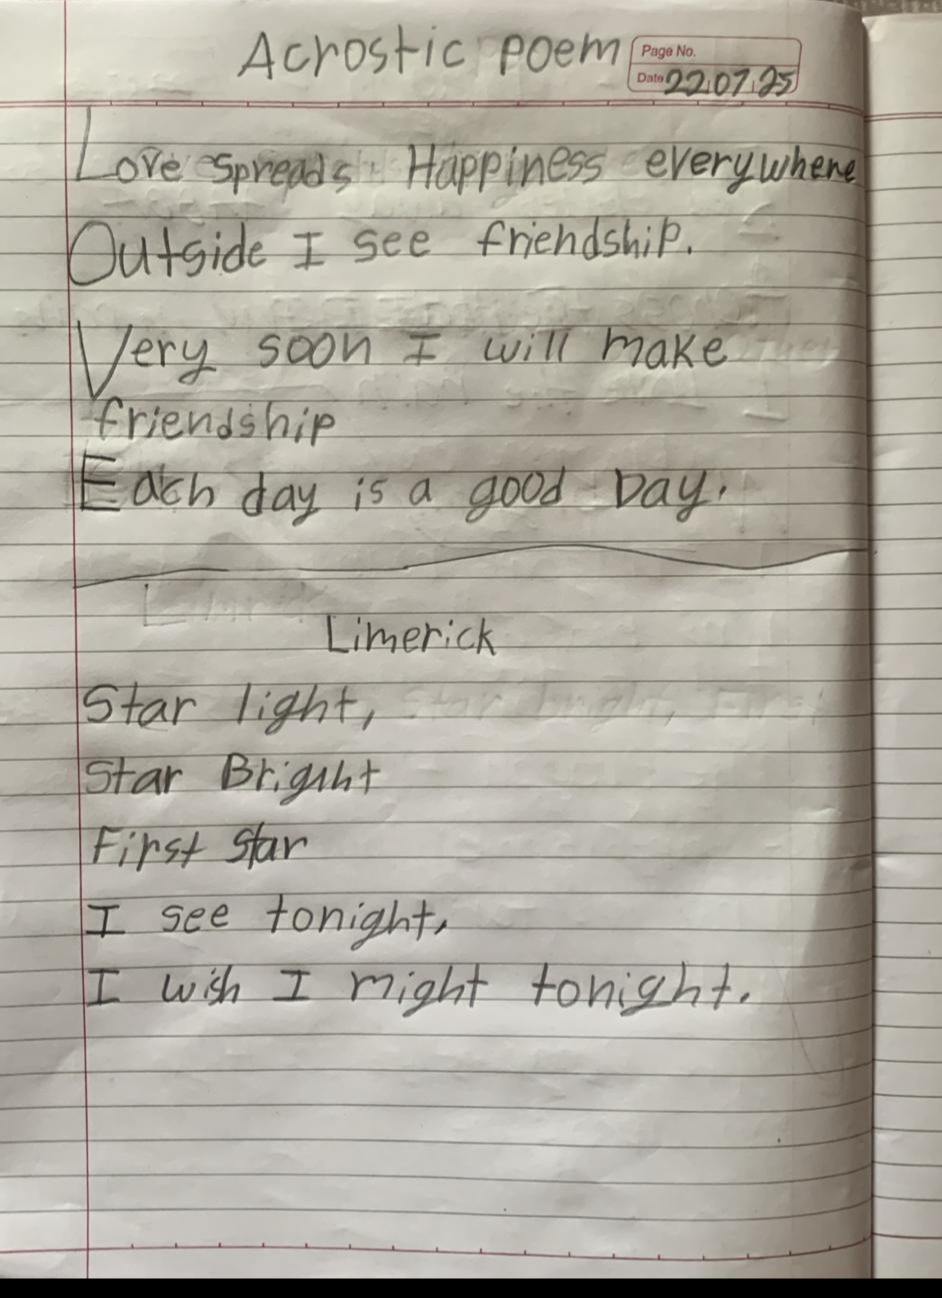 Acrostic poem
Page No.
Date 22.07.25
Love spreads Happiness everywhere
Outside I see friendship.
Very soon I will make
friendship
Each day is a good Day.
Limerick
Star light,
Star Bright
First star
I see tonight,
I wish I might tonight.